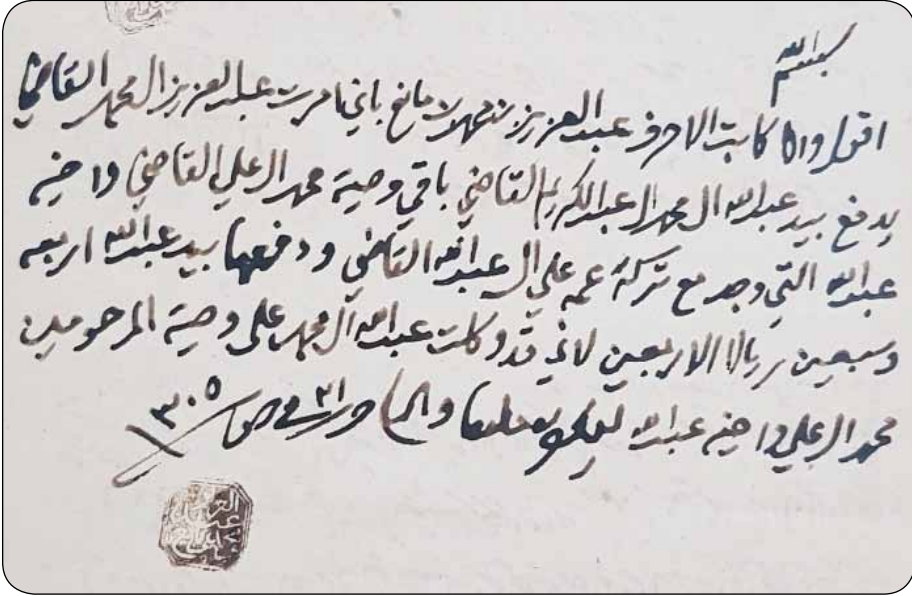 بسم الله
اقول وانا كاتب الاحرف عبدالعزيز بن محمد بن مانع باني امرت عبدالعزيز المحمد القاضي
يدفع بيد عبدالله ال محمد ال عبدالكريم القاضي باقي وصية محمد ال علي القاضي واخيه
عبدالله التي وجد مع تركة عمه علي ال عبدالله القاضي ودفعها بيد عبدالله اربعه
وسبعين ريالا الا ربعين لاني قد وكلت عبدالله ال محمد على وصية المرحومين
محمد ال علي واخيه عبدالله ٢١ ١٣٠٥